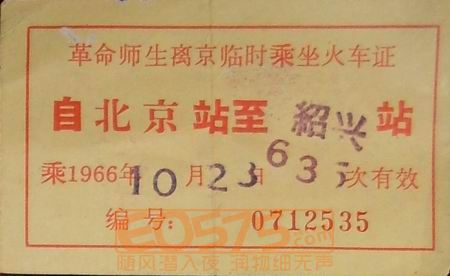 革命师生离京临时乘坐火车证
自北京站至紹兴站
乘1966年10月23日635次有效
编号: 0712535
E0575.com
随风潜入夜 润物细无声